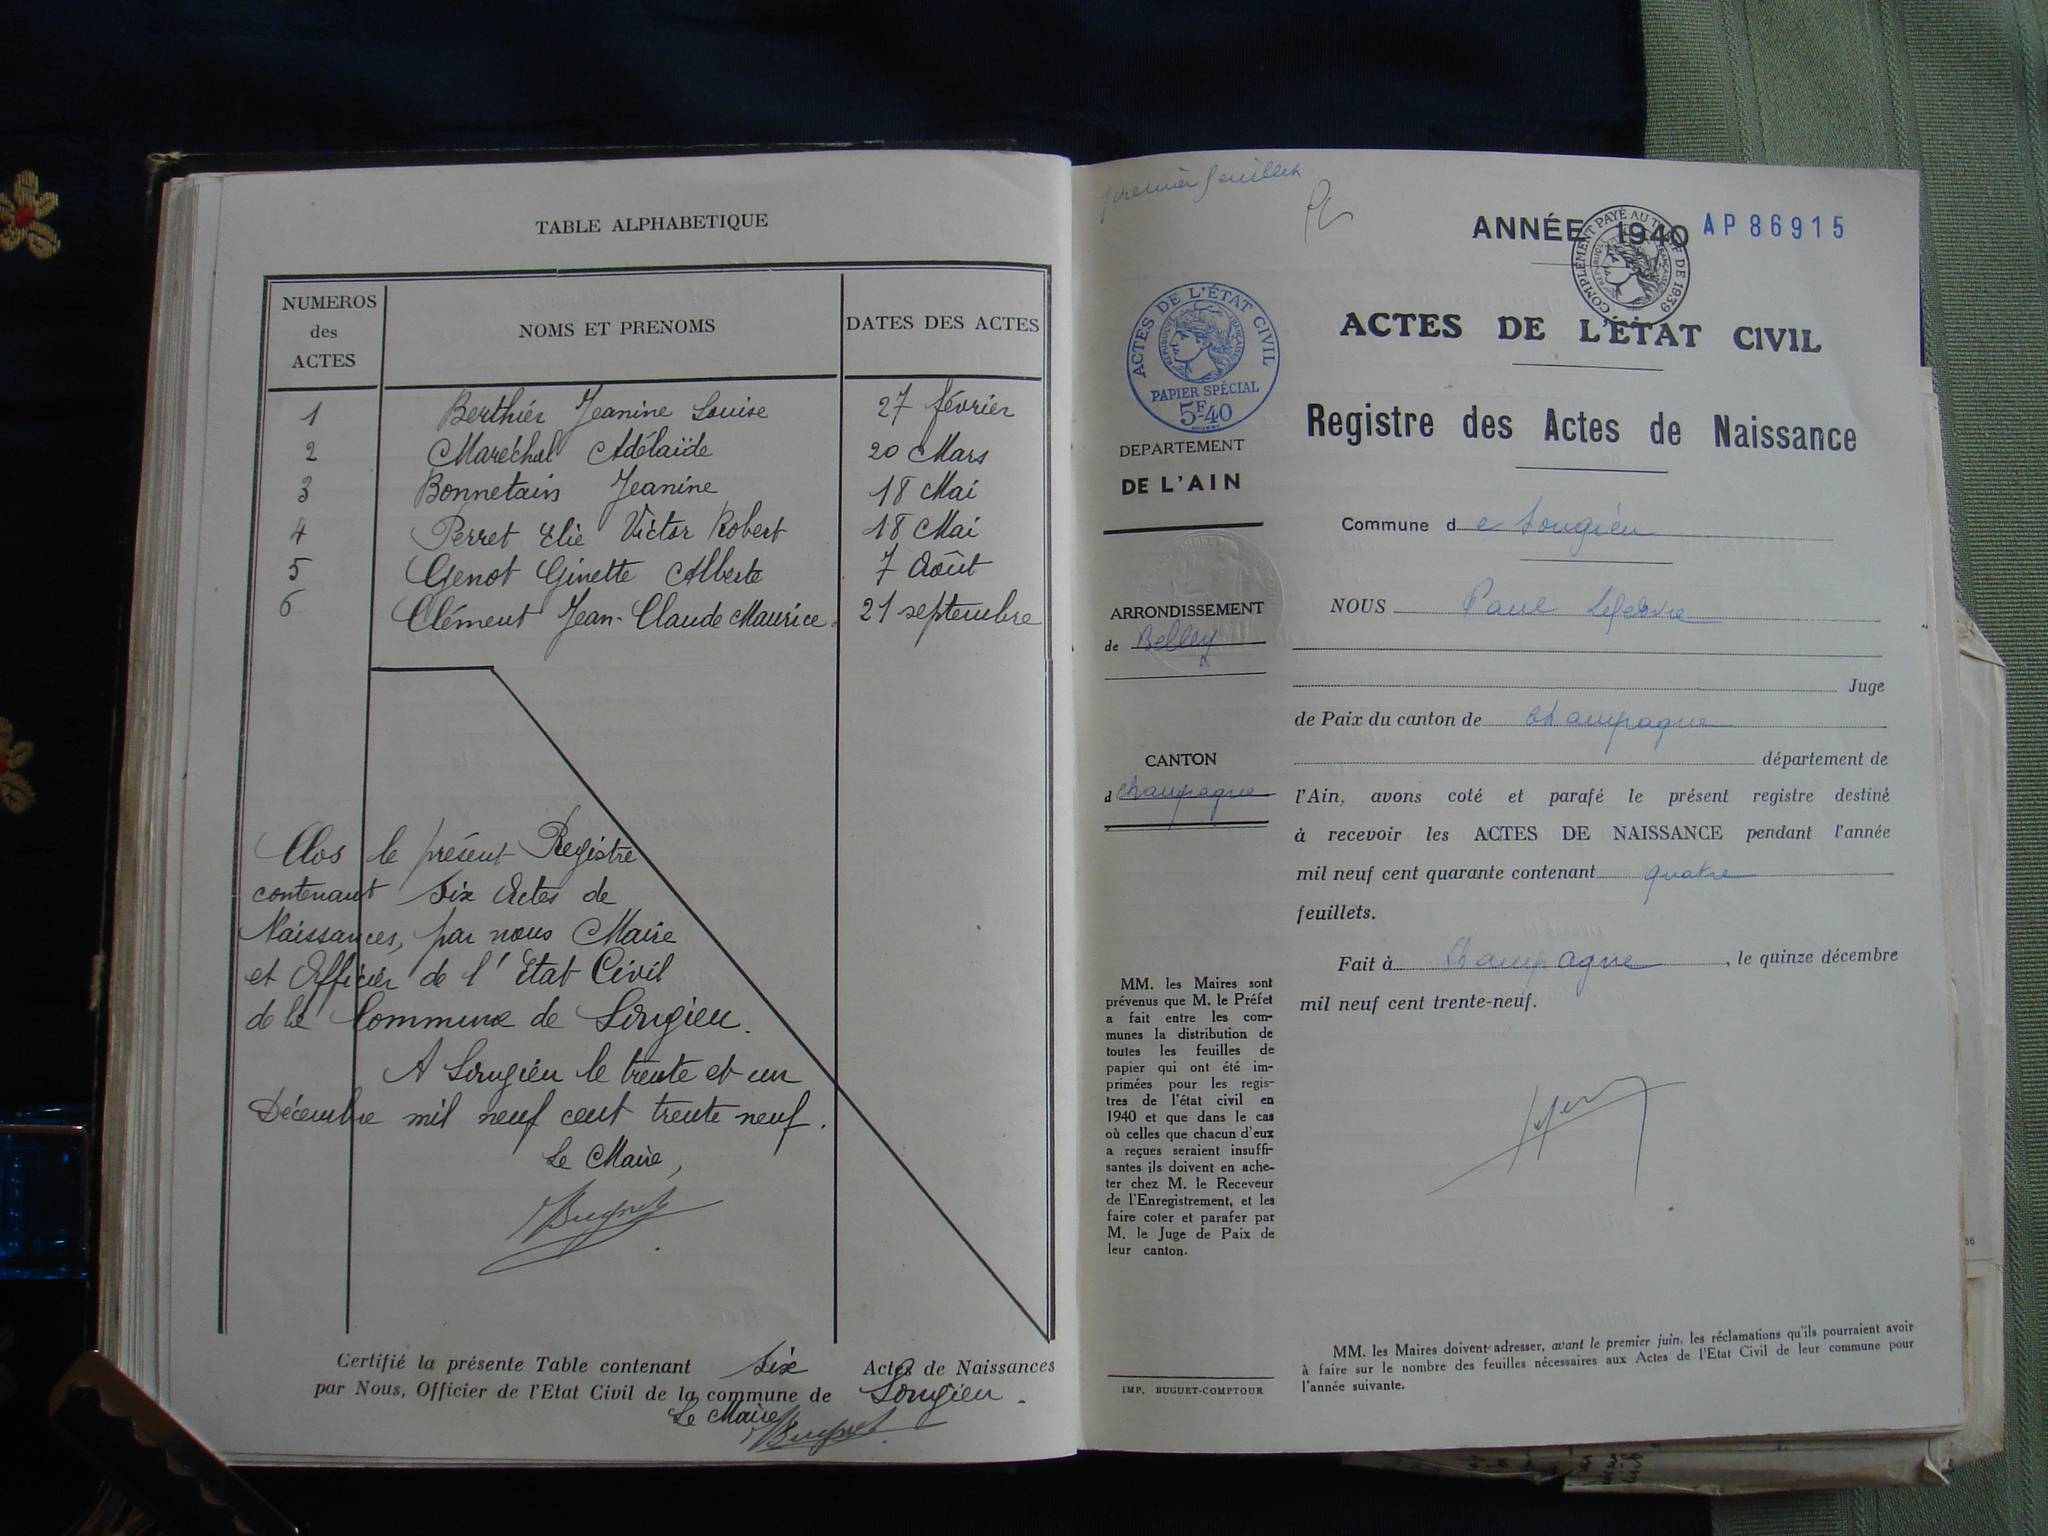 TABLE ALPHABETIQUE
NUMEROS des ACTES
NOMS ET PRENOMS
DATES DES ACTES
1 Berthier Jeanine Louise 27 février
2 Maréchal Adélaïde 20 Mars
3 Bonnetain Jeanine 18 Mai
4 Perret Elie Victor Robert 18 Mai
5 Genot Ginette Alberte 7 Août
6 Clément Jean-Claude Maurice 21 septembre
Clos le présent Registre
contenant six Actes de
Naissances, par nous Maire
et Officier de l'Etat Civil
de la Commune de Songieu.
A Songieu le trente et un
Décembre mil neuf cent trente neuf.
Le Maire,
Certifié la présente Table contenant six Actes de Naissances
par Nous, Officier de l'Etat Civil de la commune de Songieu.
Le Maire
premier feuillet
ANNÉE 1940 AP86915
COMPLÉMENT PAYÉ AU TITRE DE 1939
ACTES DE L'ÉTAT CIVIL
PAPIER SPÉCIAL
5F40
DEPARTEMENT
DE L'AIN
ARRONDISSEMENT
de Belley
CANTON
d Champagne
MM. les Maires sont
prévenus que M. le Préfet
a fait entre les com-
munes la distribution de
toutes les feuilles de
papier qui ont été im-
primées pour les regis-
tres de l'état civil en
1940 et que dans le cas
où celles que chacun d'eux
a reçues seraient insuffi-
santes ils doivent en ache-
ter chez M. le Receveur
de l'Enregistrement, et les
faire coter et parafer par
M. le Juge de Paix de
leur canton.
IMP. BUGUET-COMPTOUR
ACTES DE L'ÉTAT CIVIL
Registre des Actes de Naissance
Commune d e Songieu
NOUS Paul Lefebvre
Juge
de Paix du canton de Champagne
département de
l'Ain, avons coté et parafé le présent registre destiné
à recevoir les ACTES DE NAISSANCE pendant l'année
mil neuf cent quarante contenant quatre
feuillets.
Fait à Champagne, le quinze décembre
mil neuf cent trente-neuf.
MM. les Maires doivent adresser, avant le premier juin, les réclamations qu'ils pourraient avoir
à faire sur le nombre des feuilles nécessaires aux Actes de l'Etat Civil de leur commune pour
l'année suivante.